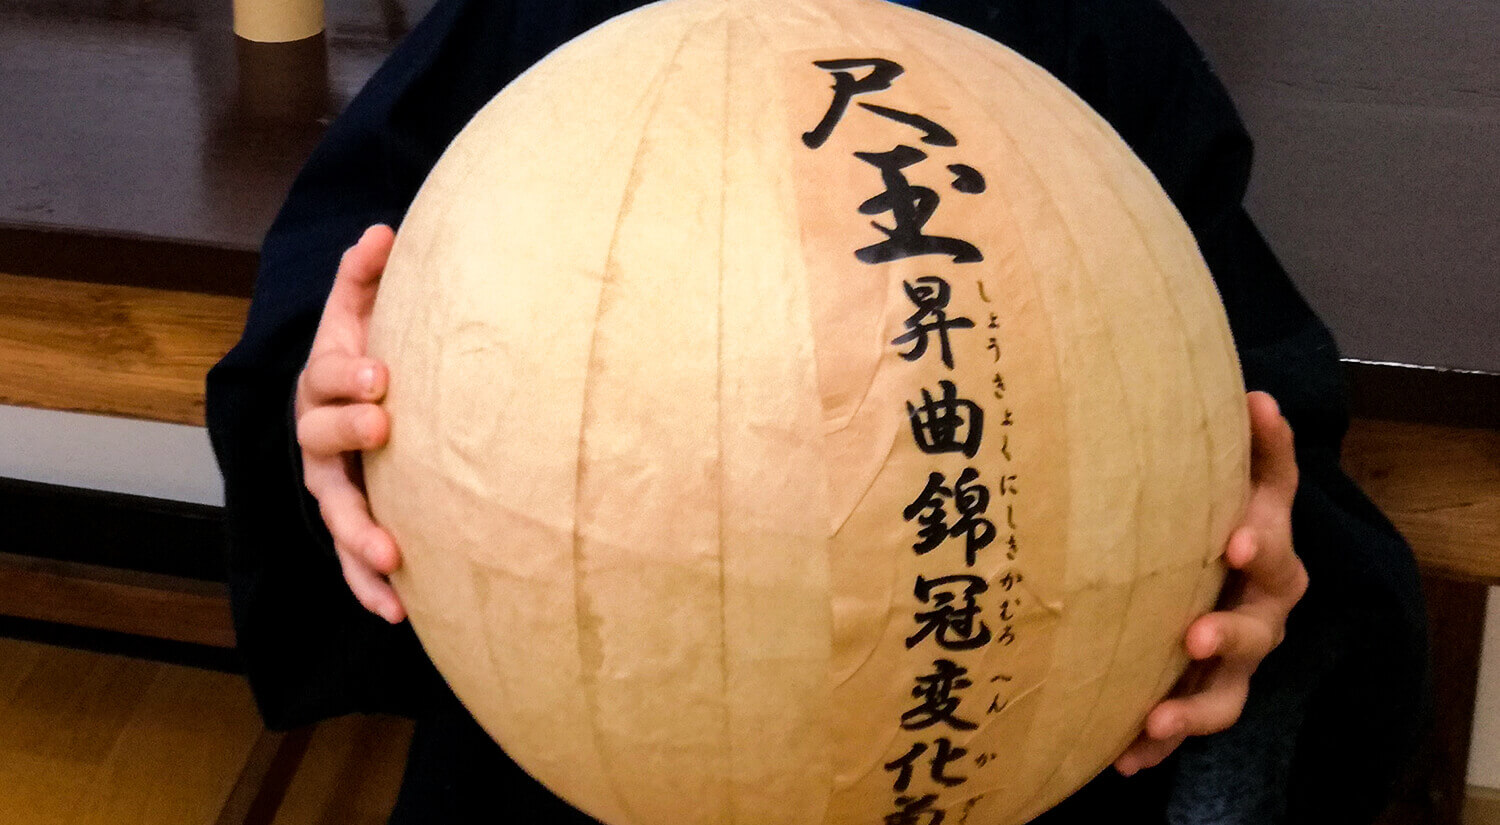 尺玉
昇曲錦冠変化
しょうきょくにしきかむろへんか